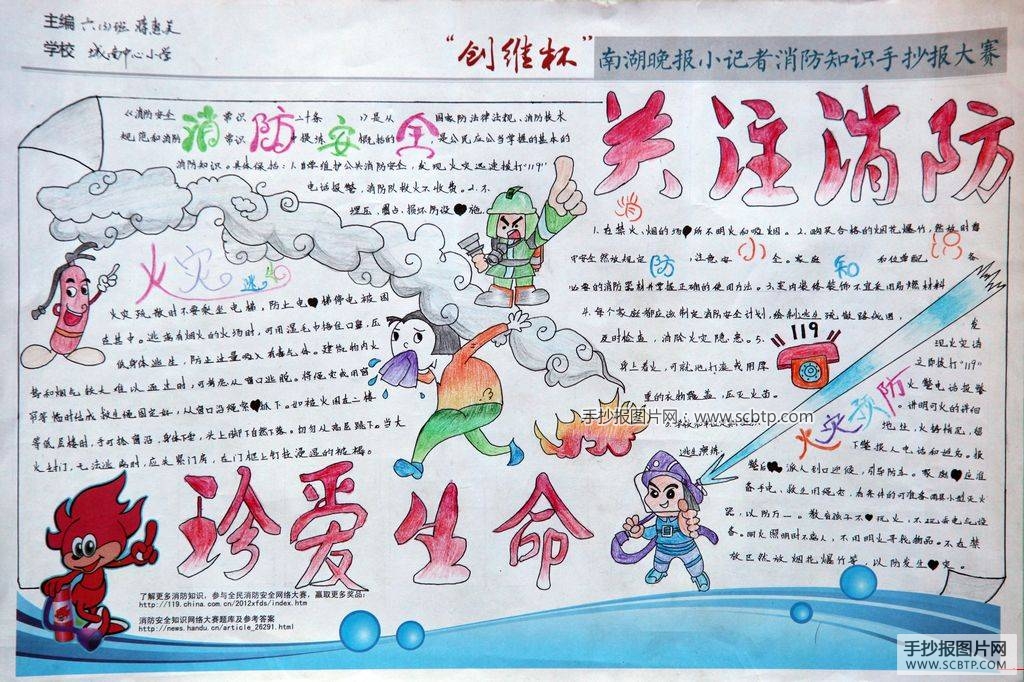 主编 六(四)班
学校 城南中心小学
“创维杯” 南湖晚报小记者消防知识手抄报大赛
关注消防
消防安全
《消防安全常识二十条》是从国家防法律法规、消防技术
规范和消防常识中提炼概括的是公民应公当掌握的基本的
消防知识。具体保括：1.自牢维护公共消防安全，发现火灾迅速拨打“119”
电话报警，消防队救火不收费。2.不
埋压、圈占、损坏防设施。
火灾逃生
火灾疏散时不要乘坐电梯，防止电梯停电被困
在其中。逃离有烟火的火场时，可用湿毛巾捂住口窗，压
低身体逃生，防止过量吸入有毒气体。建筑物内火
势和烟气较大难以逃生时，可考虑从窗口逃脱。将绳索或用窗
帘等撕时结成救生绳固定好，从窗沿绳索抓下。如被火困在二楼
等低层楼时，手可扳窗沿，身体下垂，头上脚下自然下落。切勿从高层跳下。当大
火封门，无法逃离时，应关紧门房，在门框上钉挂浸湿的被褥。
消防小知识
1.在禁火、烟的场所不明火和吸烟。2.购买合格的烟花爆竹，然放时遵
守安全然放规定，注意安全。家庭和位要配备
必要的消防器材并掌握正确的使用方法。3.室内装修装饰不宜采用易燃材料
4.每个家庭都应该制定消防安全计划，绘制逃生疏散路线图，
及时检查，消除火灾隐患。5.
身上着火，可就地打滚或用厚
重的衣物覆盖，压灭火苗。
119
火灾预防
发
现火灾请
立即拨打“119”
火警电话报警
。讲明可火的详细
地址，火势情况，留
下警报人电话和姓名。报
警后，派人到口迎候，引导防车。家庭应准
备手电、救生用绳索，有条件的可准备洞具小型灭火
器，以防万一。教育孩子不玩火，不玩弄电气设
备。明火照明时不离人，不用明火寻找物品。不在禁
放区然放烟花爆竹等，以防发生灾。
逃生演练
手抄报图片网：www.scbtp.com
珍爱生命
了解更多消防知识，参与全民消防安全网络大赛，赢取更多奖品：
http://119.china.com.cn/2012xfds/index.htm
消防安全知识网络大赛题库及参考答案
http://news.handu.cn/article_26291.html
手抄报图片网
WWW.SCBTP.COM